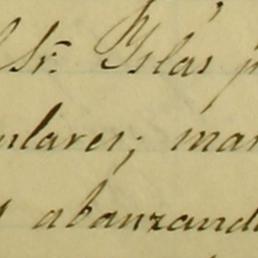 Sr. Yslas p
ulares; man
s abanzand